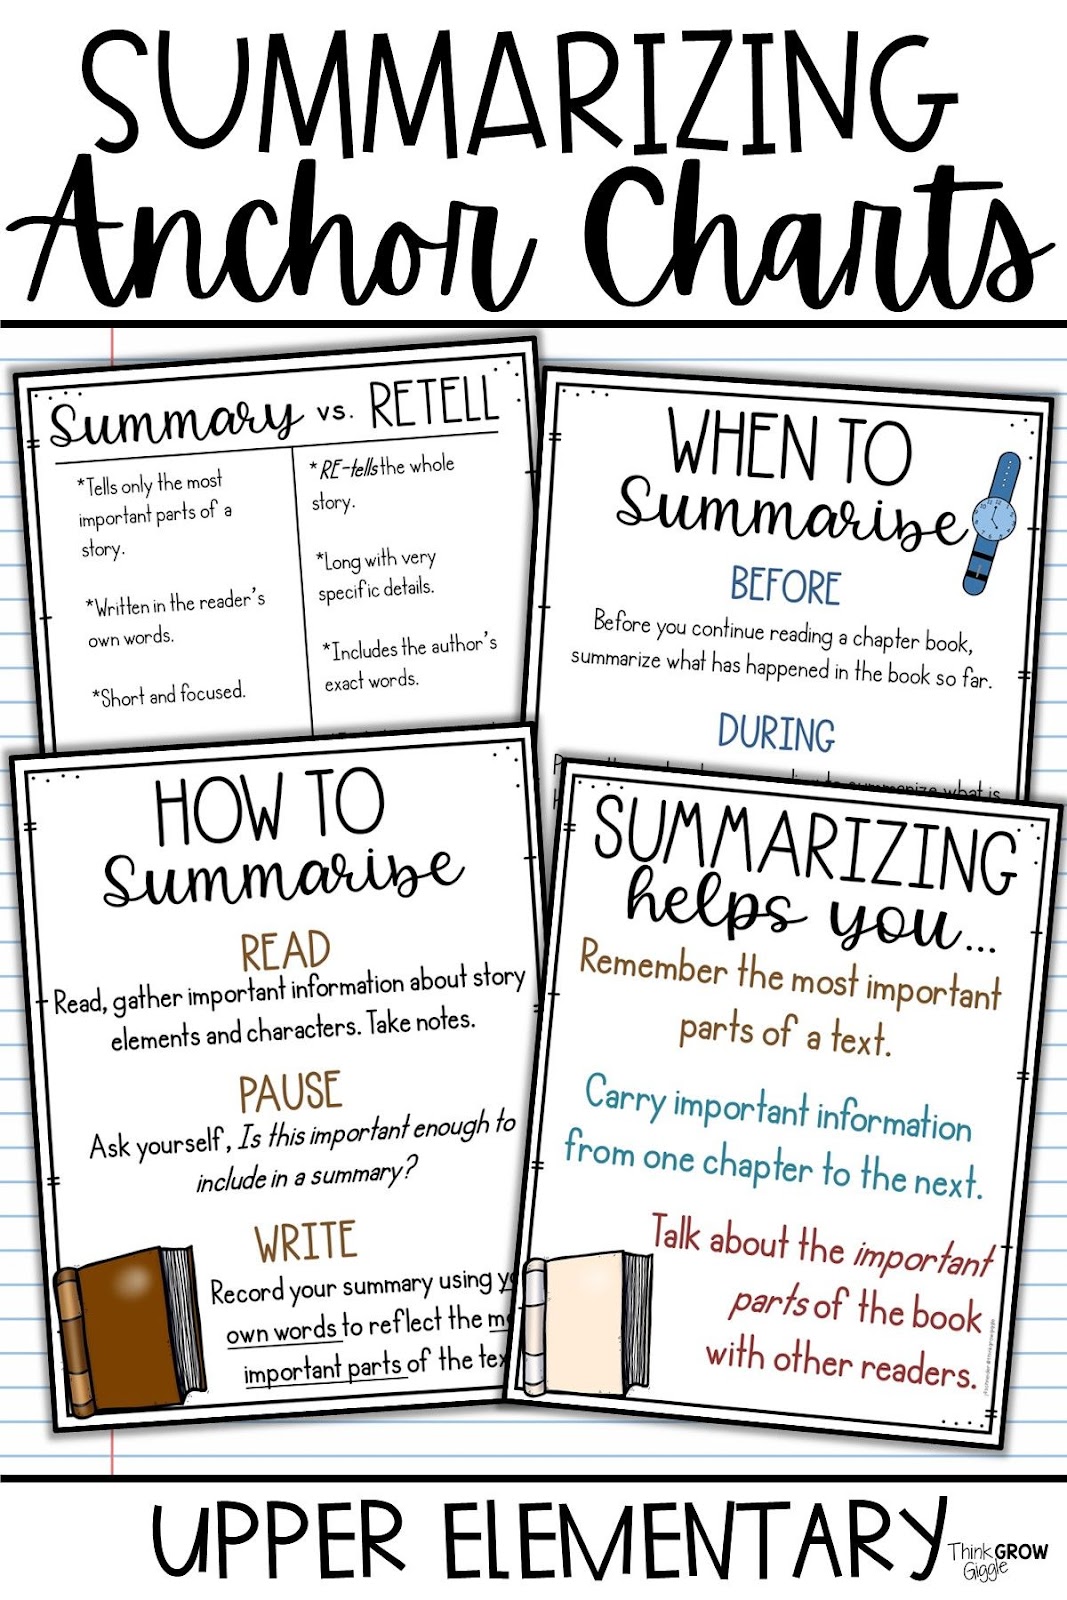 SUMMARIZING
Anchor Charts
Summary vs. RETELL
*Tells only the most
important parts of a
story.
*Written in the reader's
own words.
*Short and focused.
*RE-tells the whole
story.
*Long with very
specific details.
*Includes the author's
exact words.
WHEN TO
Summarize
BEFORE
Before you continue reading a chapter book,
summarize what has happened in the book so far.
DURING
summarize what is
HOW TO
Summarize
READ
Read, gather important information about story
elements and characters. Take notes.
PAUSE
Ask yourself, Is this important enough to
include in a summary?
WRITE
Record your summary using
own words to reflect the
important parts of the
SUMMARIZING
helps you...
Remember the most important
parts of a text.
Carry important information
from one chapter to the next.
Talk about the important
parts of the book
with other readers.
UPPER ELEMENTARY
Think GROW
Giggle